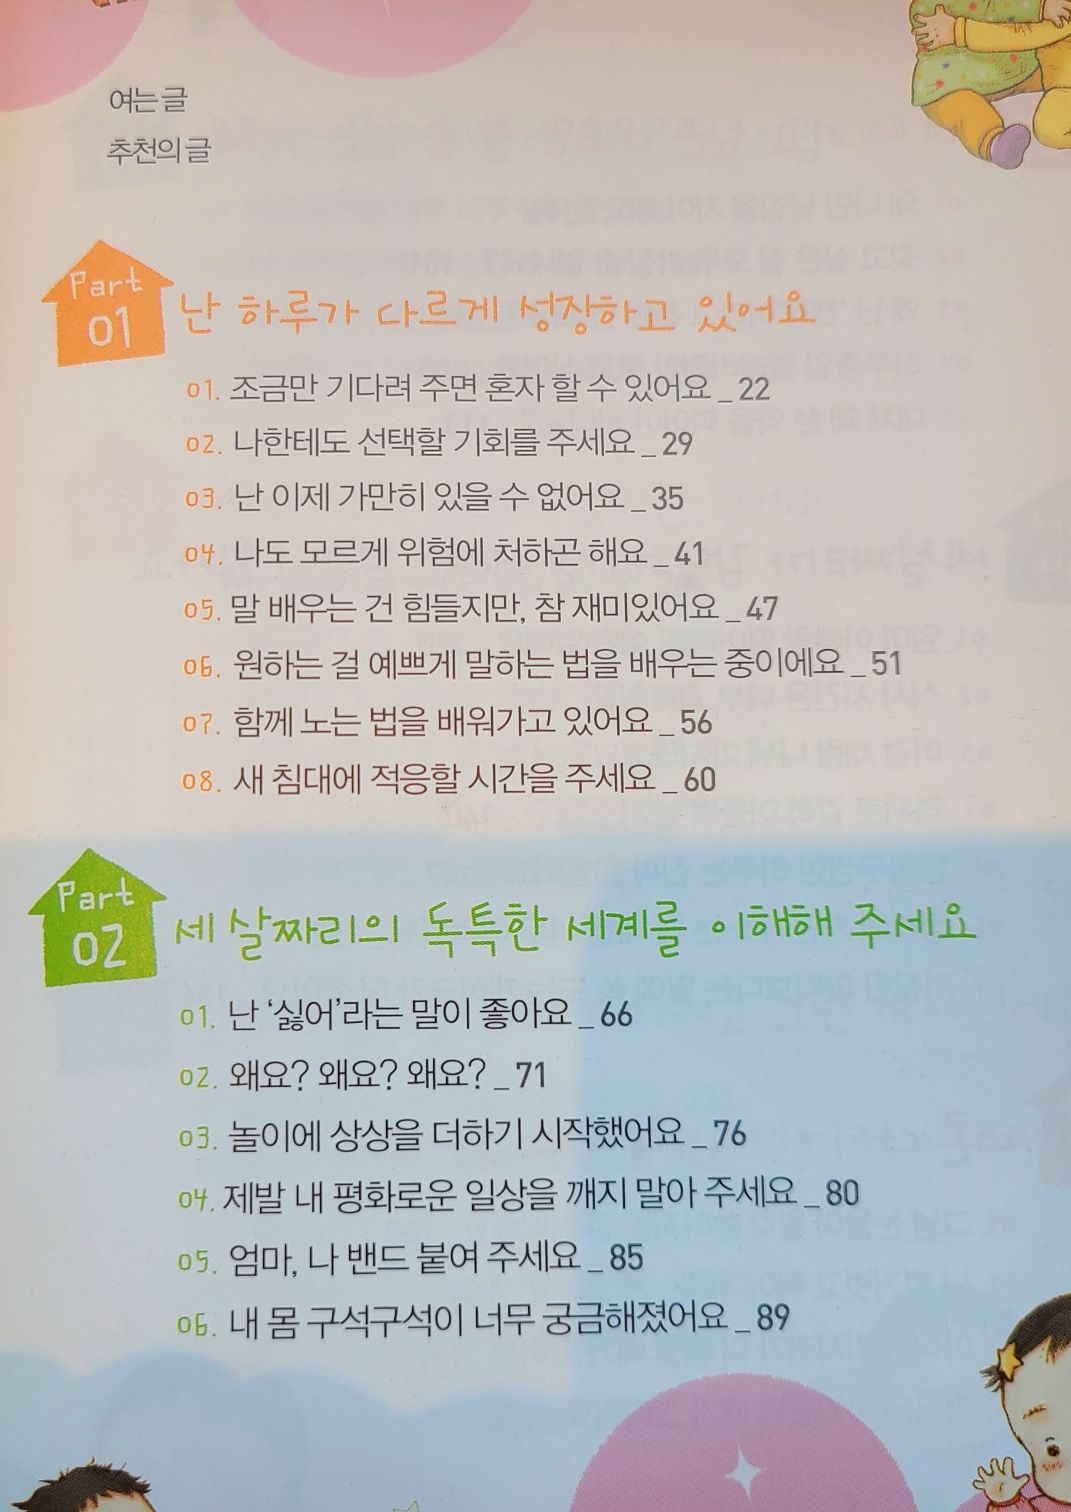 여는 글
추천의 글
Part 01
난 하루가 다르게 성장하고 있어요
01. 조금만 기다려 주면 혼자 할 수 있어요 _ 22
02. 나한테도 선택할 기회를 주세요 _ 29
03. 난 이제 가만히 있을 수 없어요 _ 35
04. 나도 모르게 위험에 처하곤 해요 _ 41
05. 말 배우는 건 힘들지만, 참 재미있어요 _ 47
06. 원하는 걸 예쁘게 말하는 법을 배우는 중이에요 _ 51
07. 함께 노는 법을 배워가고 있어요 _ 56
08. 새 침대에 적응할 시간을 주세요 _ 60
Part 02
세 살짜리의 독특한 세계를 이해해 주세요
01. 난 ‘싫어’라는 말이 좋아요 _ 66
02. 왜요? 왜요? 왜요? _ 71
03. 놀이에 상상을 더하기 시작했어요 _ 76
04. 제발 내 평화로운 일상을 깨지 말아 주세요 _ 80
05. 엄마, 나 밴드 붙여 주세요 _ 85
06. 내 몸 구석구석이 너무 궁금해졌어요 _ 89